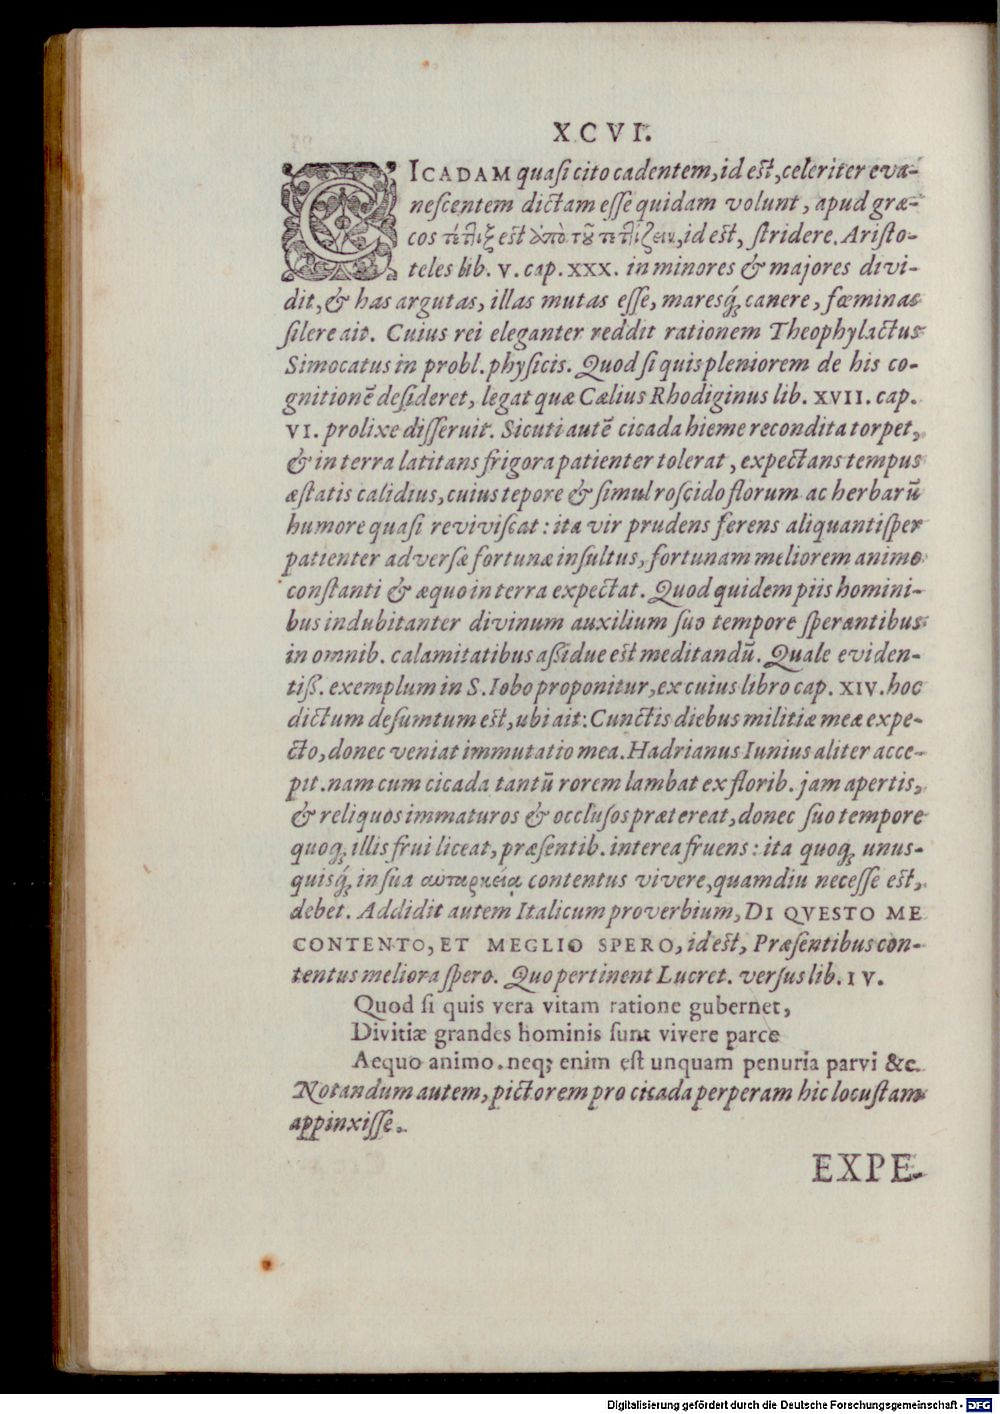 XCVI.
CICADAM quasi cito cadentem, id est, celeriter eva-
nescentem dictam esse quidam volunt, apud græ-
cos τέτλιξ est ἀπὸ τοῦ τετλίζειν, id est, stridere. Aristo-
teles lib. V. cap. XXX. in minores & majores divi-
dit, & has argutas, illas mutas esse, maresq́; canere, fœminas
silere ait. Cuius rei eleganter reddit rationem Theophylactus
Simocatus in probl. physicis. Quod si quis pleniorem de his co-
gnitionē desideret, legat quæ Cælius Rhodiginus lib. XVII. cap.
VI. prolixe disseruit. Sicuti autē cicada hieme recondita torpet,
& in terra latitans frigora patienter tolerat, expectans tempus
æstatis calidius, cuius tepore & simul roscido florum ac herbarū
humore quasi reviviscat: ita vir prudens ferens aliquantisper
patienter adversæ fortunæ insultus, fortunam meliorem animo
constanti & æquo in terra expectat. Quod quidem piis homini-
bus indubitanter divinum auxilium suo tempore sperantibus
in omnib. calamitatibus assidue est meditandū. Quale eviden-
tiß. exemplum in S. Iobo proponitur, ex cuius libro cap. XIV. hoc
dictum desumtum est, ubi ait: Cunctis diebus militiæ meæ expe-
cto, donec veniat immutatio mea. Hadrianus Iunius aliter acce-
pit. nam cum cicada tantū rorem lambat ex florib. jam apertis,
& reliquos immaturos & occlusos prætereat, donec suo tempore
quoq; illis frui liceat, præsentib. interea fruens: ita quoq; unus-
quisq́; in sua αυταρκείᾳ contentus vivere, quamdiu necesse est,
debet. Addidit autem Italicum proverbium, DI QVESTO ME
CONTENTO, ET MEGLIO SPERO, id est, Præsentibus con-
tentus meliora spero. Quo pertinent Lucret. versus lib. IV.
Quod si quis vera vitam ratione gubernet,
Divitiæ grandes hominis sunt vivere parce
Aequo animo. neq; enim est unquam penuria parvi &c.
Notandum autem, pictorem pro cicada perperam hic locustam
appinxisse.
EXPE-
Digitalisierung gefördert durch die Deutsche Forschungsgemeinschaft - DFG